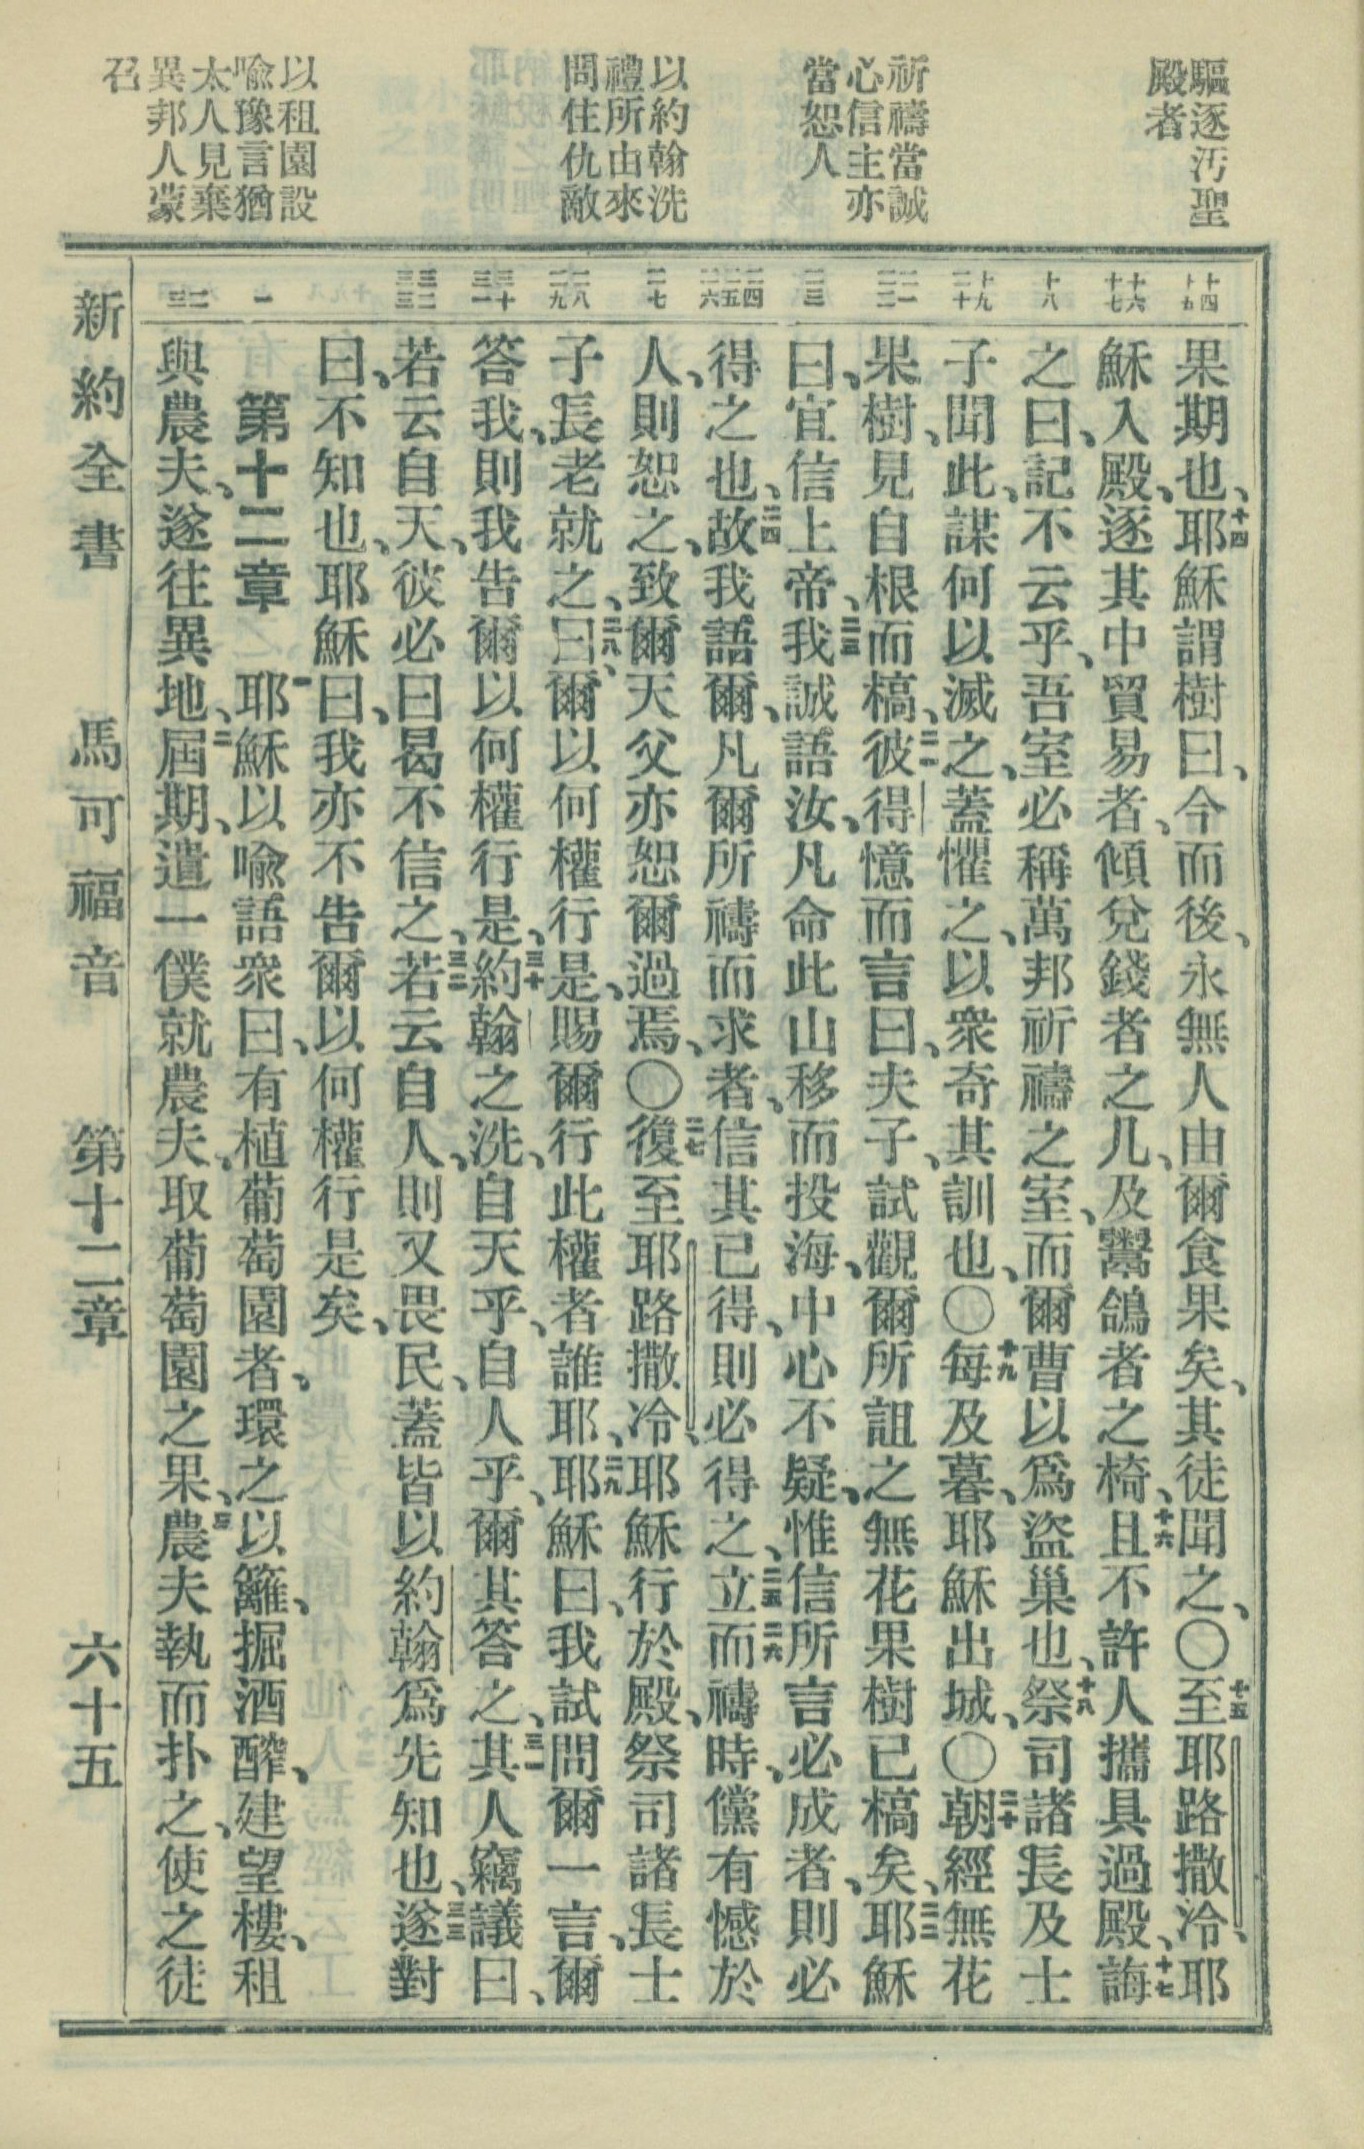 驅逐汚聖
殿者
祈禱當誠
心信主亦
當恕人
以約翰洗
禮所由來
問住仇敵
以租園設
喩豫言猶
太人見棄
異邦人蒙
召
十四 十五
果期也、十四耶穌謂樹曰、今而後、永無人由爾食果矣、其徒聞之、〇十五至耶路撒冷、耶
十六 十七
穌入殿、逐其中貿易者、傾兌錢者之几、及鬻鴿者之椅、十六且不許人攜具過殿、十七誨
十八
之曰、記不云乎、吾室必稱萬邦祈禱之室、而爾曹以爲盜巢也、十八祭司諸長及士
十九 二十
子聞此、謀何以滅之、蓋懼之、以衆奇其訓也、〇十九每及暮、耶穌出城、〇二十朝經無花
二一 二二
果樹、見自根而槁、二一彼得憶而言曰、夫子、試觀爾所詛之無花果樹已槁矣、二二耶穌
二三
曰、宜信上帝、二三我誠語汝、凡命此山移而投海、中心不疑、惟信所言必成者、則必
二四 二五 二六
得之也、二四故我語爾、凡爾所禱而求者、信其已得、則必得之、二五立而二六禱時、儻有憾於
二七
人、則恕之、致爾天父亦恕爾過焉、〇二七復至耶路撒冷、耶穌行於殿、祭司諸長士
二八 二九
子長老就之、二八曰、爾以何權行是、賜爾行此權者誰耶、二九耶穌曰、我試問爾一言、爾
三十 三一
答我、則我告爾以何權行是、三十約翰之洗、自天乎、自人乎、爾其答之、三一其人竊議曰、
三二 三三
若云自天、彼必曰曷不信之、三二若云自人、則又畏民、蓋皆以約翰爲先知也、三三遂對
曰、不知也、耶穌曰、我亦不告爾以何權行是矣、
一
第十二章 一耶穌以喩語衆曰、有植葡萄園者、環之以籬、掘酒醡、建望樓、租
二 三
與農夫、遂往異地、二屆期、遣一僕就農夫、取葡萄園之果、三農夫執而扑之、使之徒
新約全書 馬可福音 第十二章 六十五